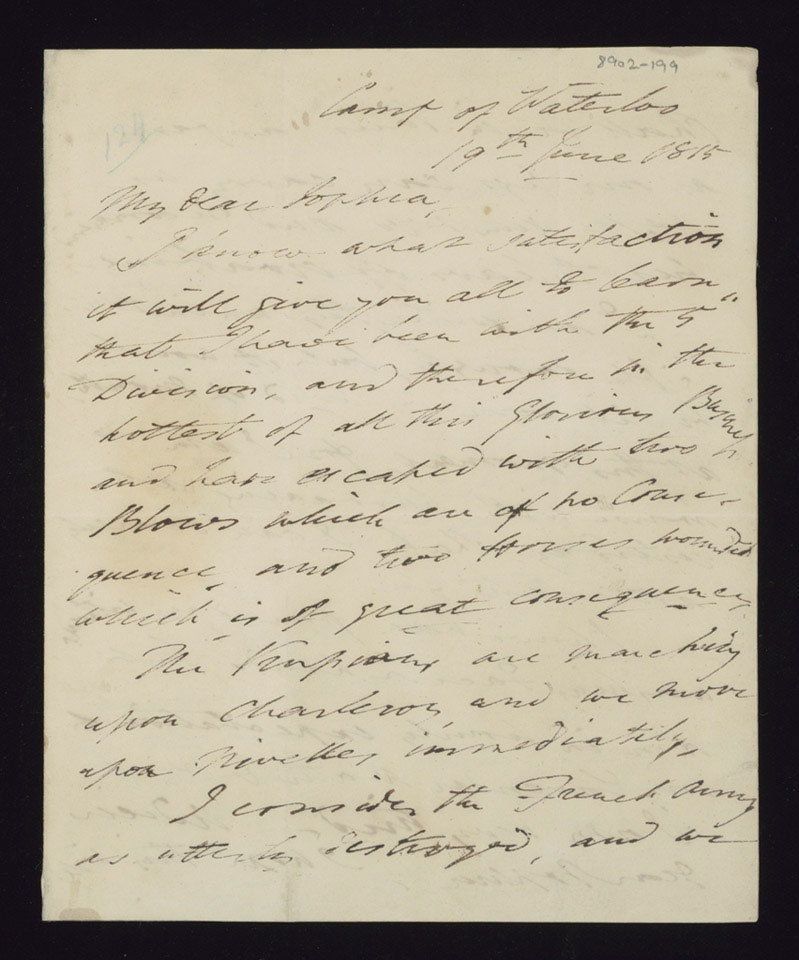 8902-199
Camp of Waterloo
124
19th June 1815
My dear Sophia,
I know what satisfaction
it will give you all to learn
that I have been with the 5th
Division, and therefore in the
hottest of all this Glorious Business
and have escaped with two
Blows which are of no Conse-
quence, and two Horses wounded
which is of great consequence,
The Prussians are marching
upon Charleroi, and we move
upon Nivelles immediately,
I consider the French Army
as utterly destroyed, and we